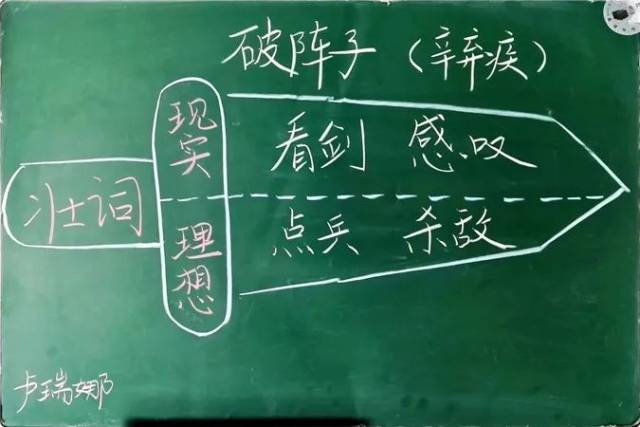 破阵子（辛弃疾）
现实
看剑 感叹
壮词
理想
点兵 杀敌
卢瑞娜